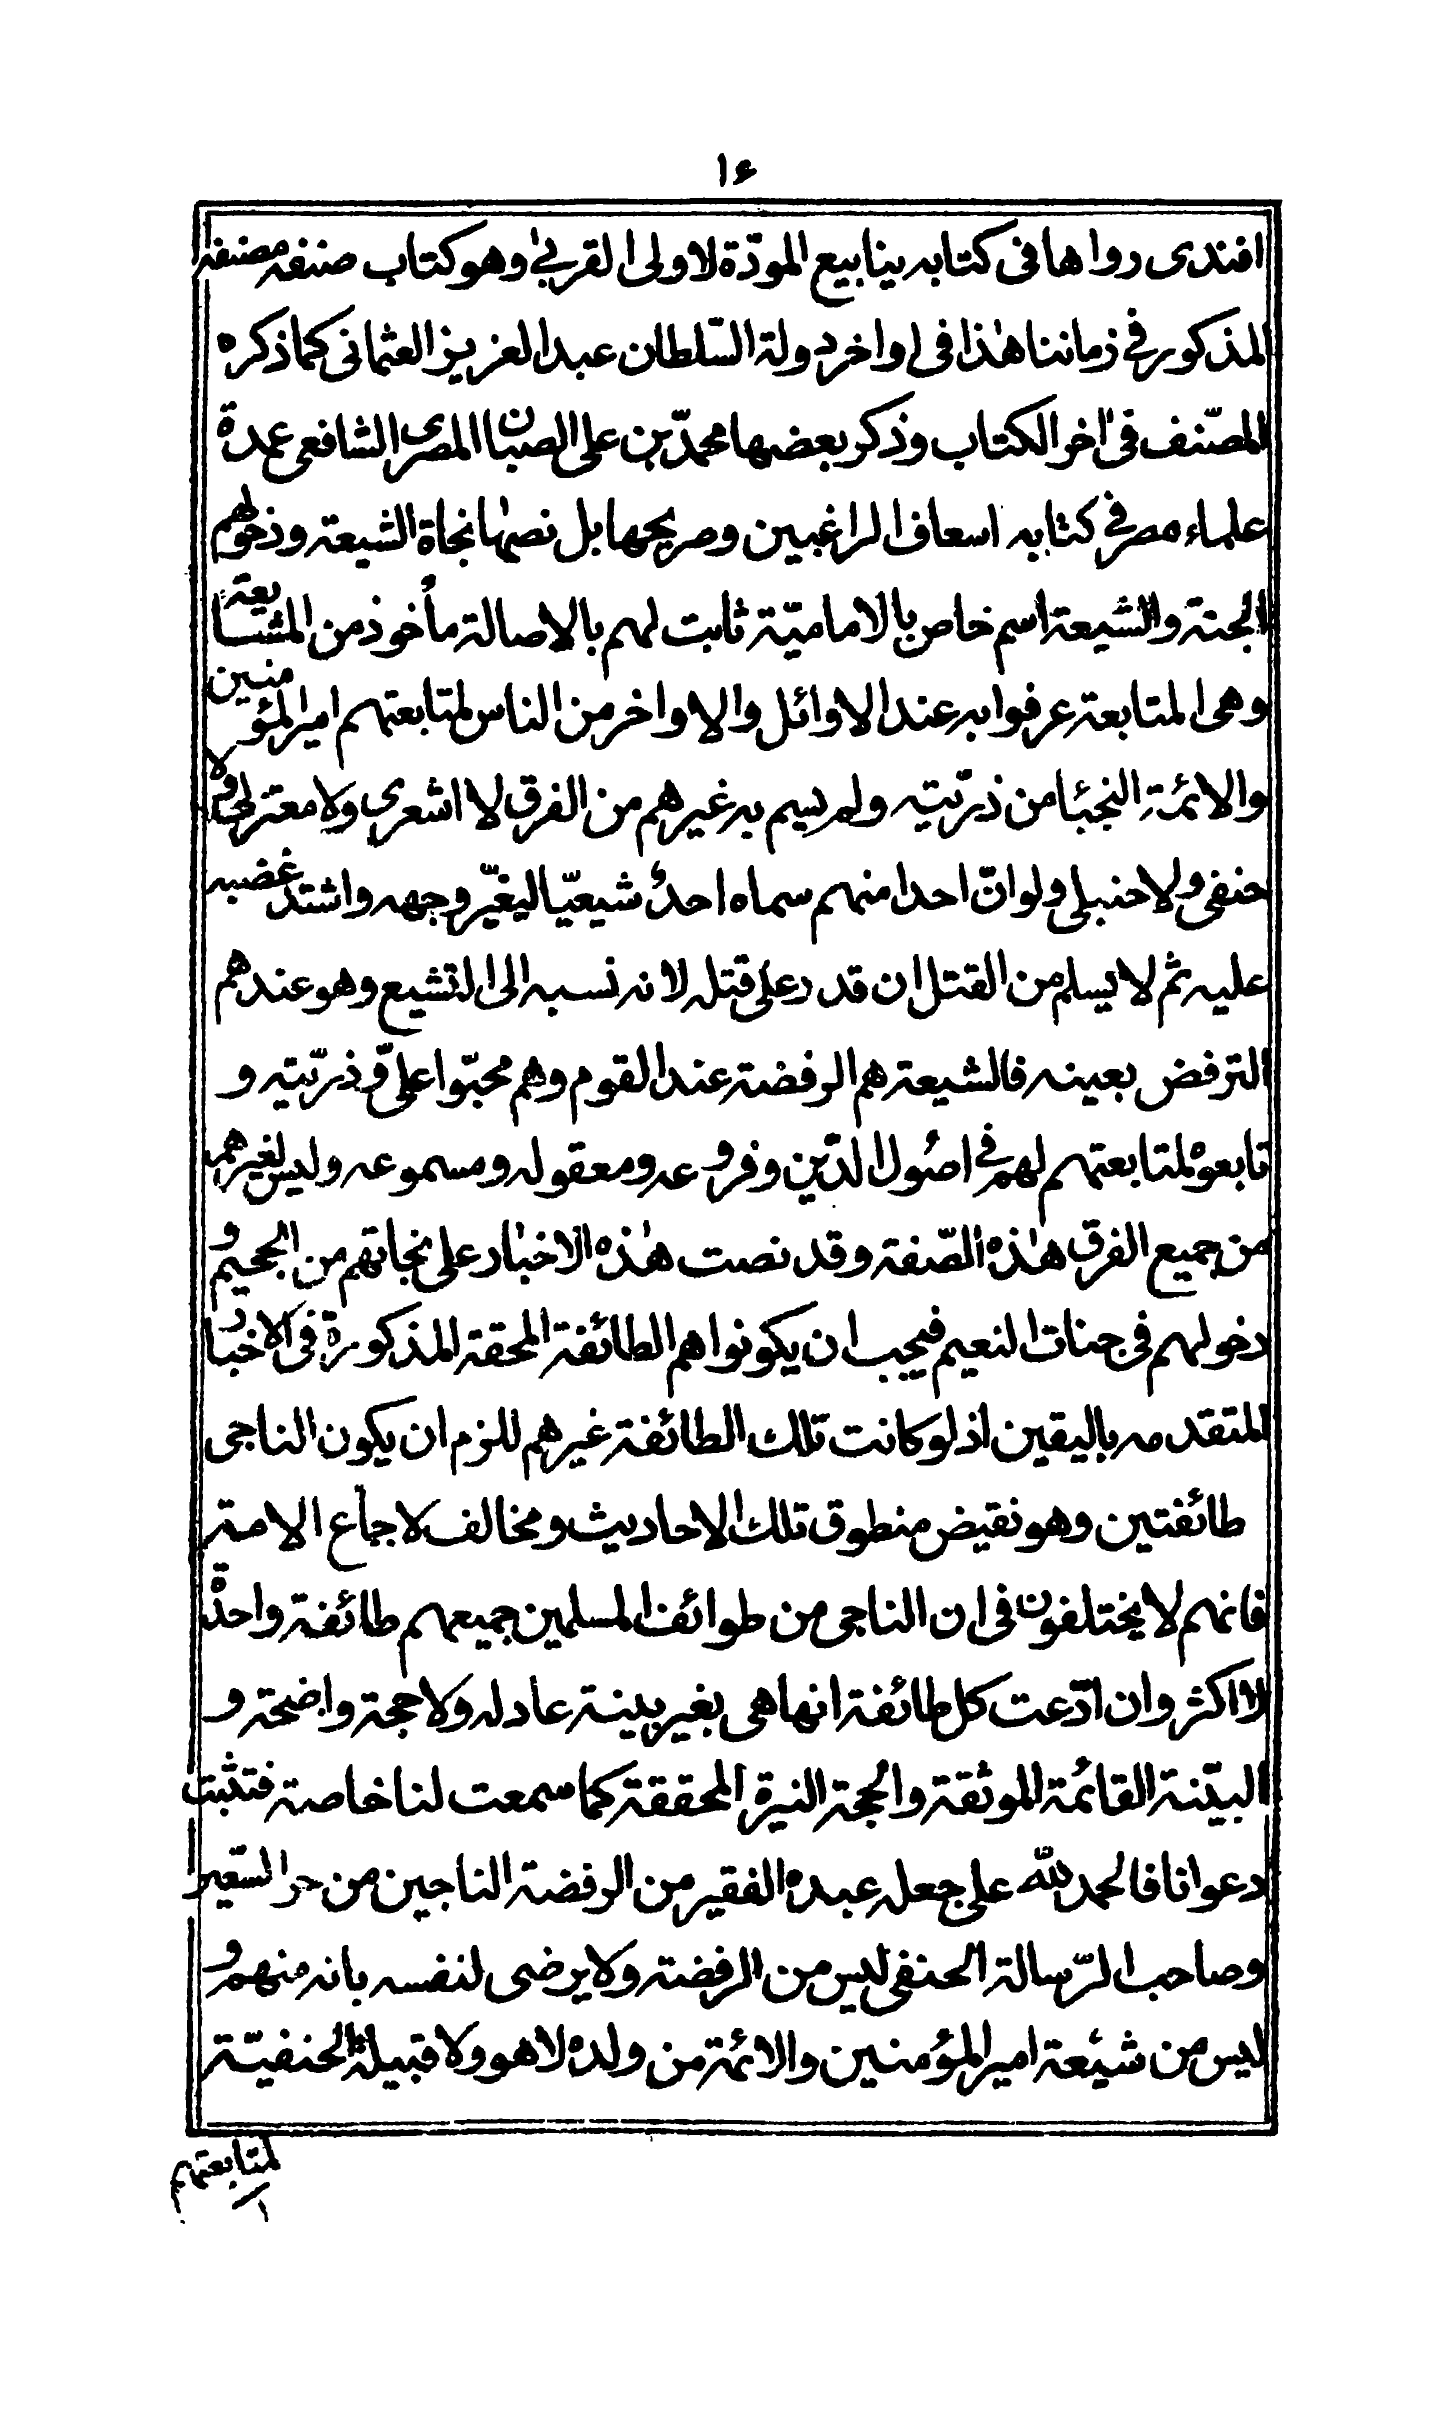 ١٤
افندى رواها فى كتابه ينابيع المودّة لاولى القربىٰ وهو كتاب صنفه مصنفه
المذكور فى زماننا هٰذا فى اواخر دولة السّلطان عبد العزيز العثمانى كما ذكره
المصّنف فى اٰخر الكتاب وذكر بعضها محمّد بن على الصبان المصرى الشافعى عمدة
علماء مصر فى كتابه اسعاف الراغبين وصريحها بل نصهٰا نجاة الشيعة ودخولهم
الجنة والشيعة اسم خاص بالاماميّة ثابت لهم بالاصالة مأخوذ من المشايعة
وهى المتابعة عرفوا به عند الاوائل والاواخر من الناس لمتابعتهم امير المئومنين
والائمة النجبٰا من ذرّيته ولم يسم به غيرهم من الفرق لا اشعرى ولا معتزلى ولا
حنفى ولا حنبلى ولو انّ احدا منهم سماه احدٌ شيعيّا ليغيّر وجهه واشتد غضبه
عليه ثم لا يسلم من القتل ان قدر على قتله لانه نسبه الى التشيع وهو عندهم
الترفض بعينه فالشيعة هم الرفضة عند القوم وهم محبّوا علىّ وذرّيته و
تابعوه لمتابعتهم لهم فى اصُول الدّين وفروعه ومعقوله ومسموعه وليس لغيرهم
من جميع الفرق هٰذه الصّفة وقد نصت هٰذه الاخبٰار على نجاتهم من الجحيم و
دخولهم فى جنات النعيم فيجب ان يكونوا هم الطائفة المحقة المذكورة فى الاخبٰار
المتقدمه باليقين اذ لو كانت تلك الطائفة غيرهم للزم ان يكون الناجى
طائفتين وهو نقيض منطوق تلك الاحاديث ومخالف لاجمأع الامة
فانهم لا يختلفون فى ان الناجى من طوائف المسلمين جميعهم طائفة واحدة
لا اكثر وان ادّعت كل طائفة انها هى بغير بينة عادله ولا حجة واضحة و
البيّنة القائمة الموثقة والحجة النيرة المحققة كما سمعت لنا خاصة فتثبت
دعوانا فالحمد لله على جعله عبده الفقير من الرفضة الناجين من حر السّعير
وصاحب الرّسالة الحنفى ليس من الرفضة ولا يرضى لنفسه بانه منهم و
ليس من شيعة امير المؤمنين والائمة من ولده لا هو ولا قبيلة الحنفيّة
لمتابعتهم